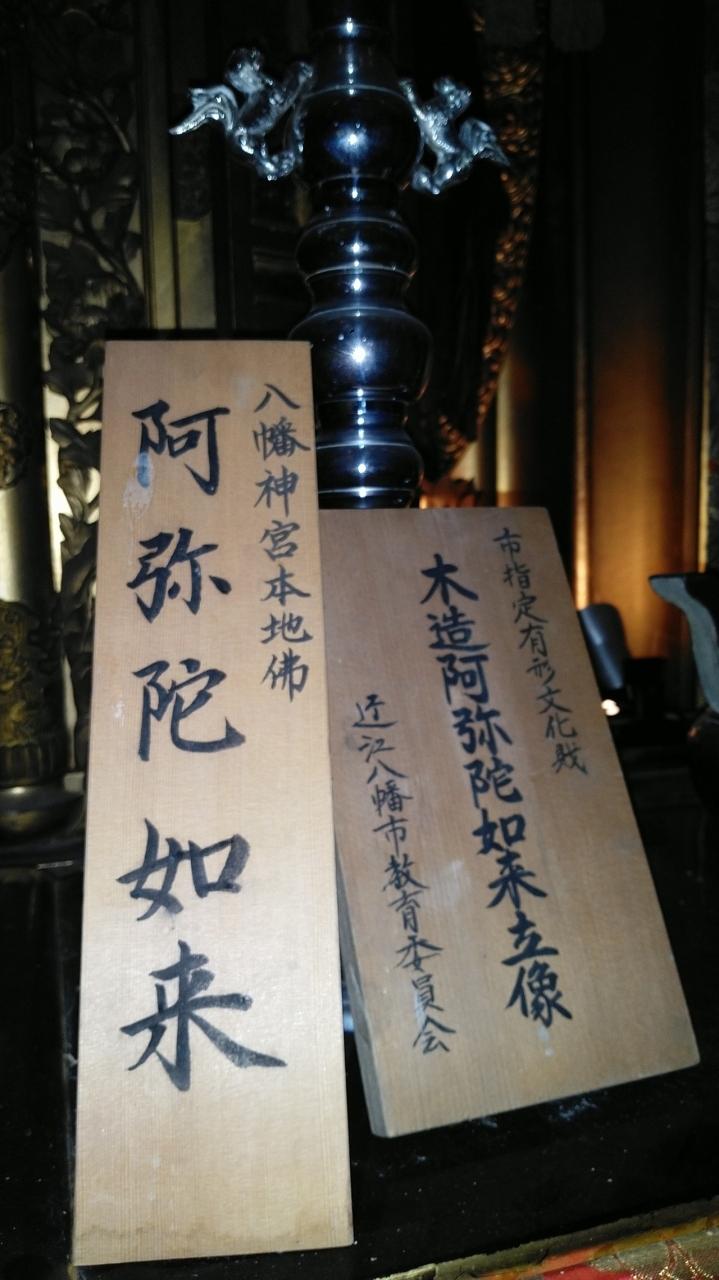 八幡神宮本地佛
阿弥陀如来
市指定有形文化財
木造阿弥陀如来立像
近江八幡市教育委員会